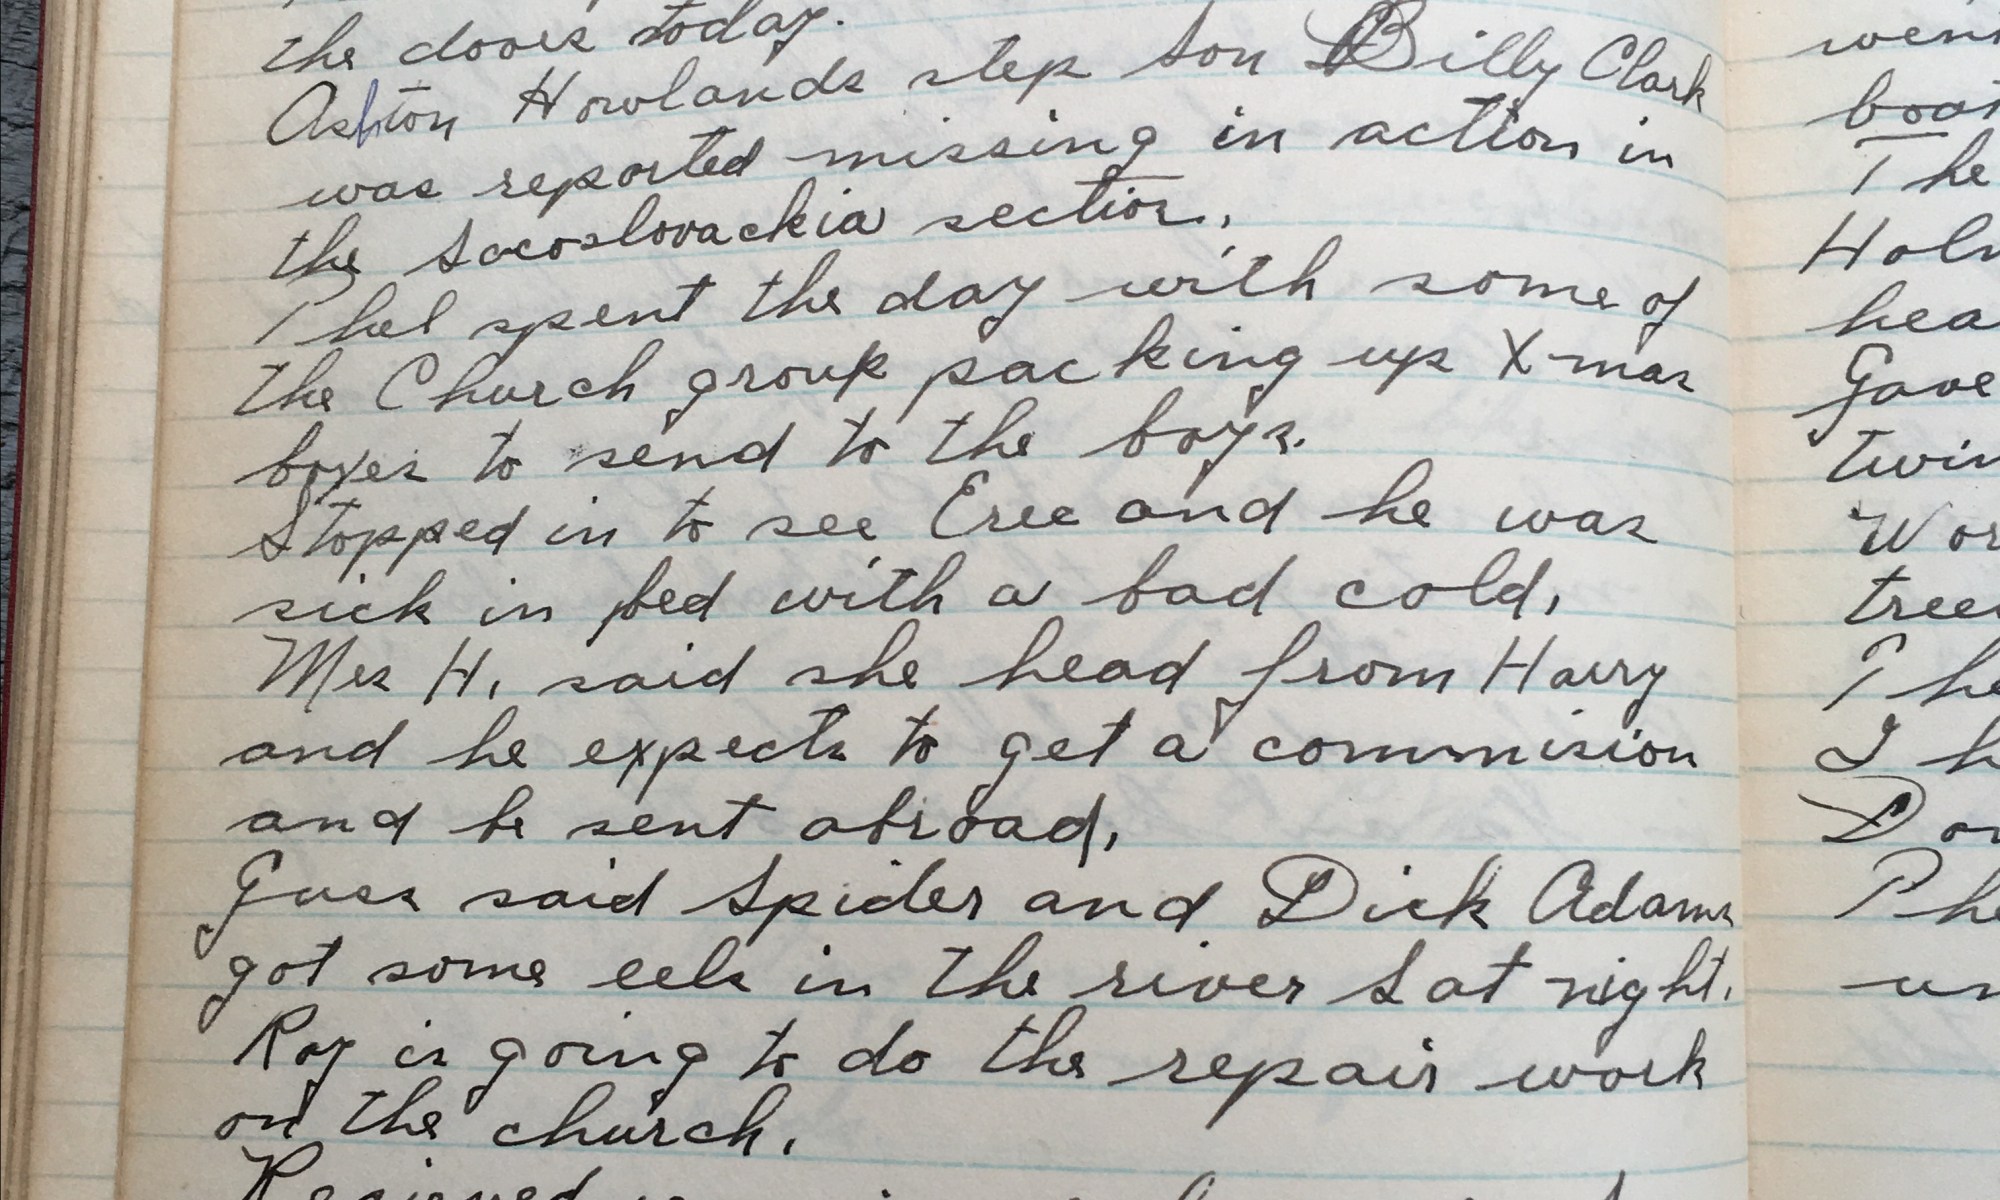 the doors today.
Ashton Howlands step son Billy Clark
was reported missing in action in
the Socoslovackia section.
Phel spent the day with some of
the Church group packing up X-mas
boxes to send to the boys.
Stopped in to see Eree and he was
sick in bed with a bad cold.
Mrs H. said she head from Harry
and he expects to get a commision
and be sent abroad.
Guss said Spider and Dick Adams
got some eels in the river Sat night.
Roy is going to do the repair work
on the church.
Recieved
went
boat
The
Holm
hea
Gave
twin
Wor
tree
Phe
I h
Don
Phe
un